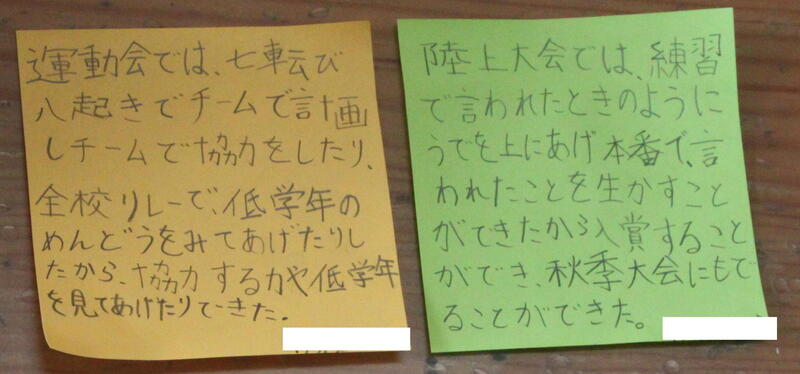 運動会では、七転び
八起きでチームで計画
しチームで協力をしたり、
全校リレーで、低学年の
めんどうをみてあげたりし
たから、協力する力や低学年
を見てあげたりできた。
陸上大会では、練習
で言われたときのように
うでを上にあげ本番で、言
われたことを生かすこと
ができたから入賞すること
ができ、秋季大会にもで
ることができた。